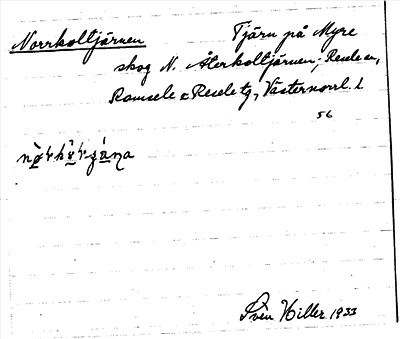 Norrkoltjärnen Tjärn på Myre
skog N. Återkoltjärnen; Resele sn,
Ramsele o Resele tg, Västernorrl. l
56
Sven Hiller 1933